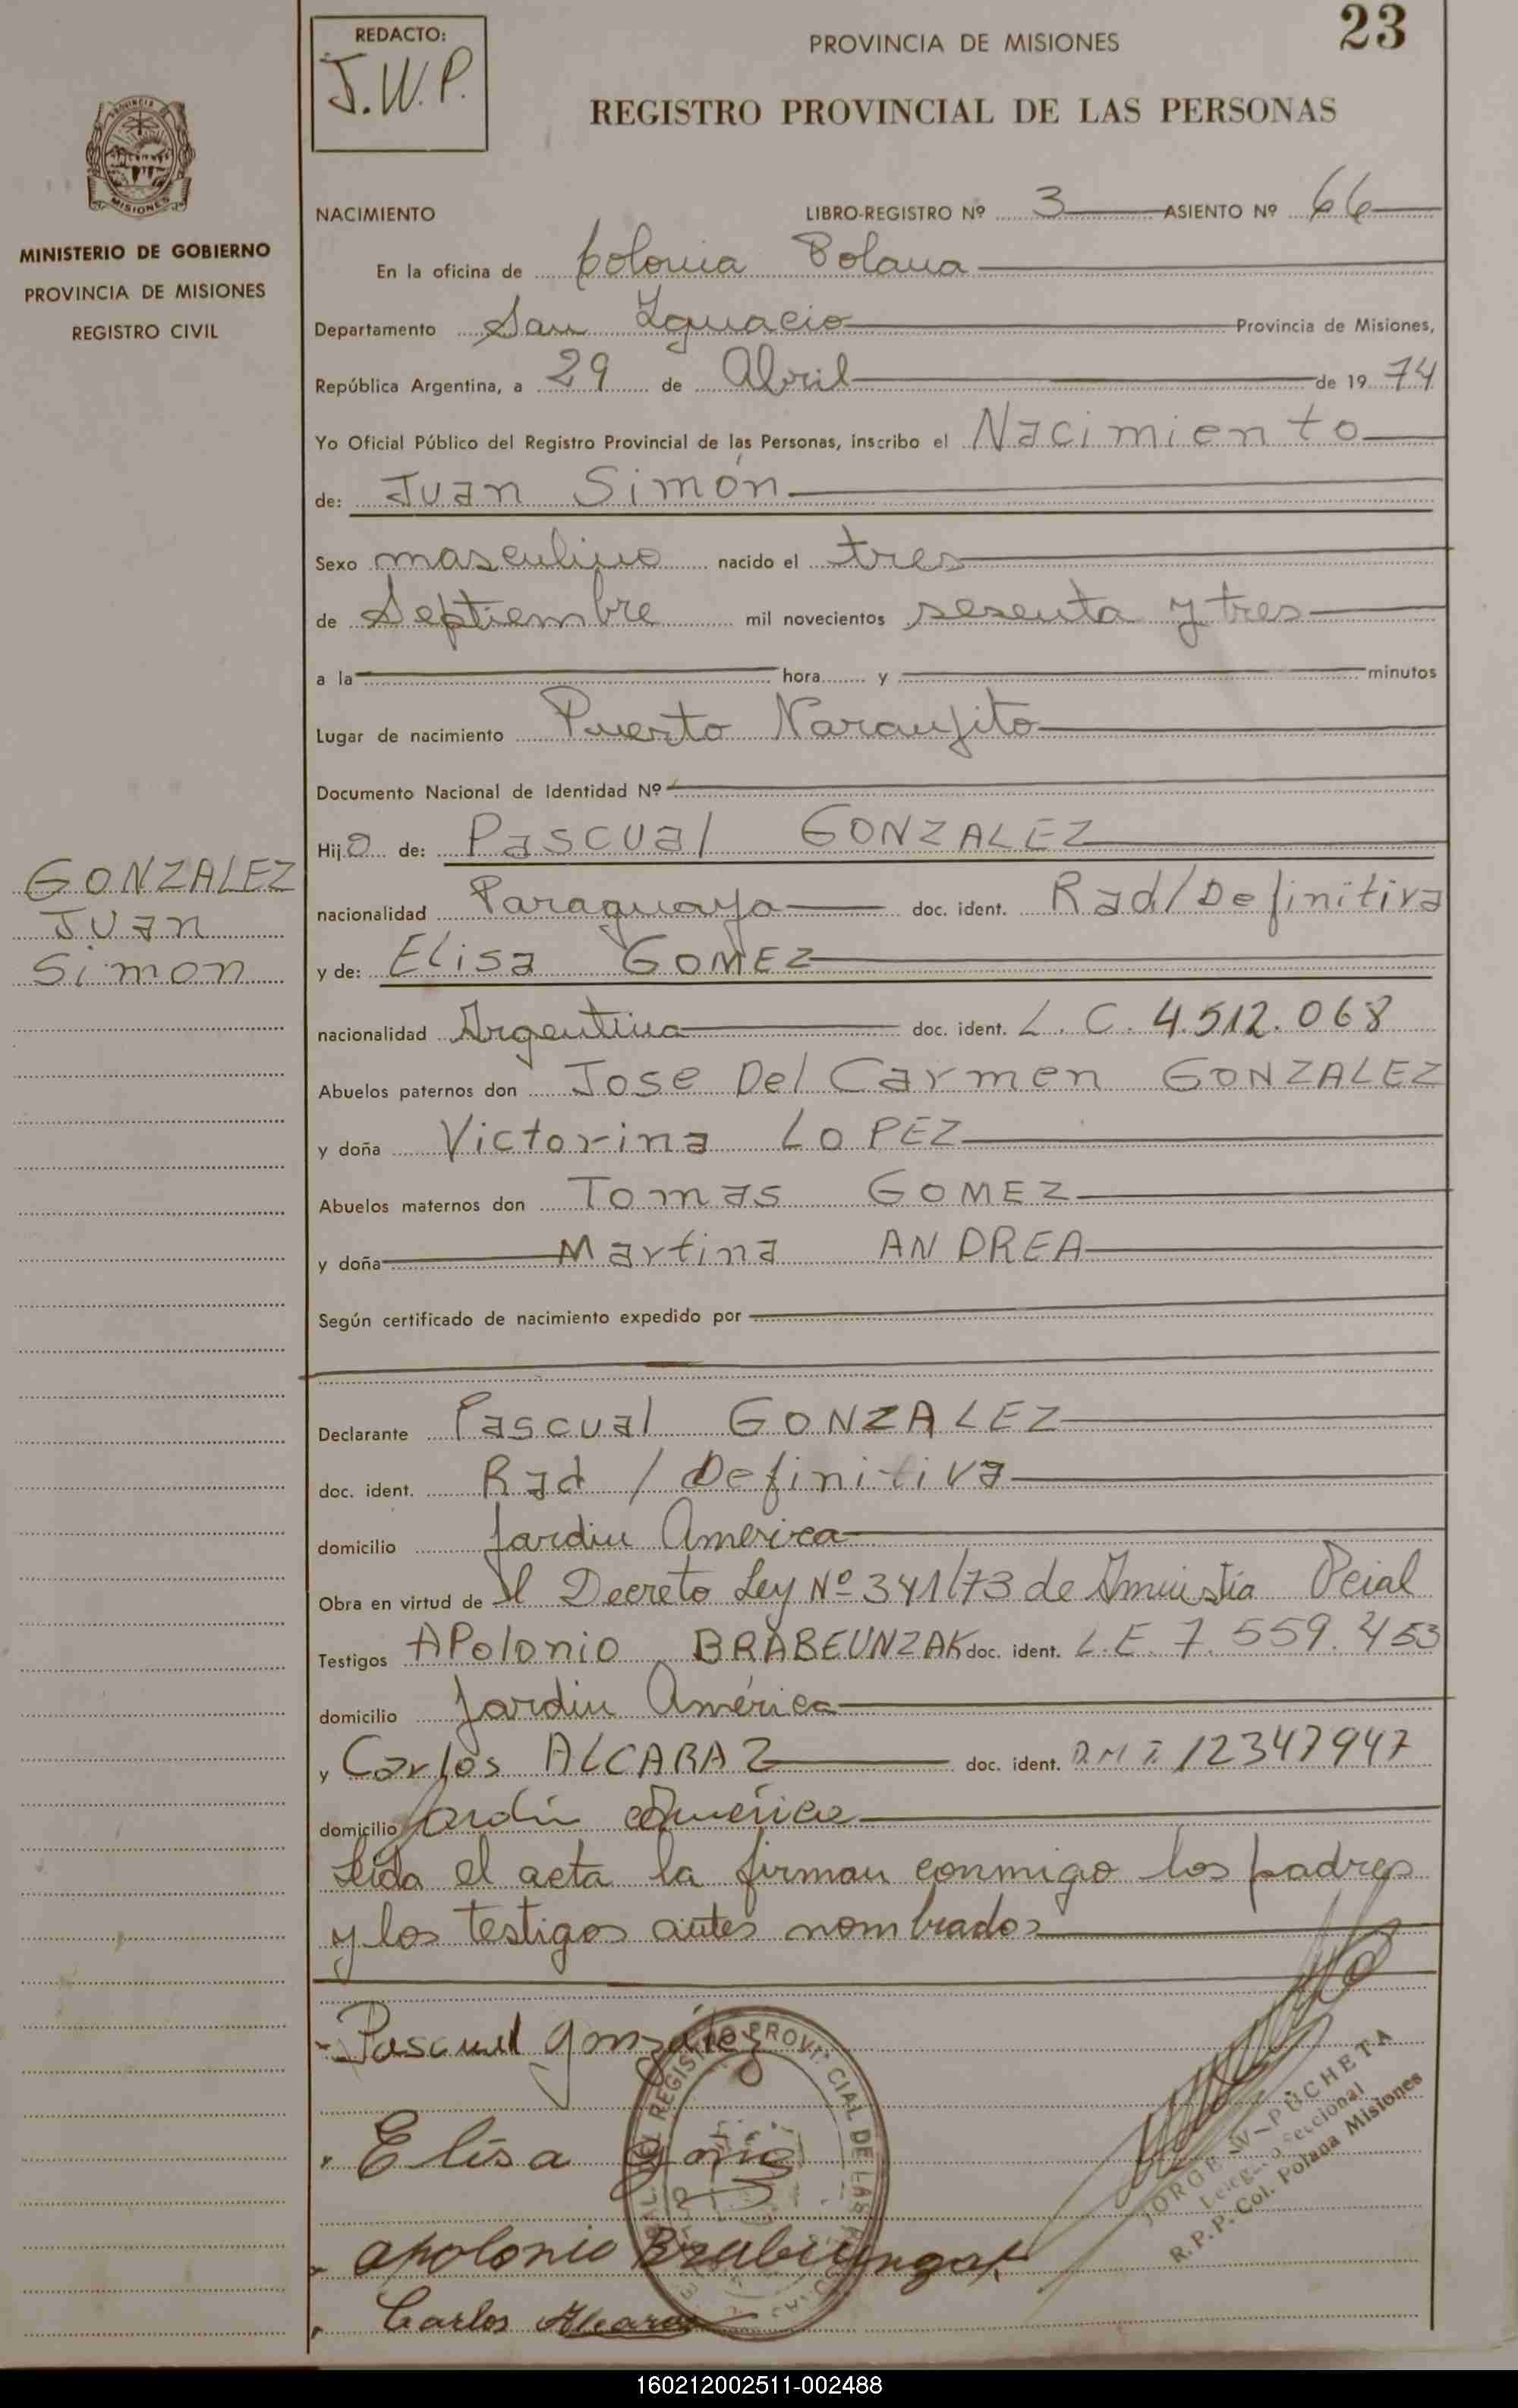 REDACTO:
J.W.P.
PROVINCIA DE MISIONES
23
REGISTRO PROVINCIAL DE LAS PERSONAS
PROVINCIA
MISIONES
MINISTERIO DE GOBIERNO
PROVINCIA DE MISIONES
REGISTRO CIVIL
GONZALEZ
Juan
Simon
NACIMIENTO LIBRO-REGISTRO Nº 3 ASIENTO Nº 66
En la oficina de Colonia Polana
Departamento San Ignacio Provincia de Misiones,
República Argentina, a 29 de Abril de 19 74
Yo Oficial Público del Registro Provincial de las Personas, inscribo el Nacimiento
de: Juan Simón
Sexo masculino nacido el tres
de Septiembre mil novecientos sesenta y tres
a la hora y minutos
Lugar de nacimiento Puerto Naranjito
Documento Nacional de Identidad Nº
Hijo de: Pascual GONZALEZ
nacionalidad Paraguaya doc. ident. Rad/Definitiva
y de: Elisa GOMEZ
nacionalidad Argentina doc. ident. L. C. 4.512.068
Abuelos paternos don Jose Del Carmen GONZALEZ
y doña Victorina LOPEZ
Abuelos maternos don Tomas GOMEZ
y doña Martina ANDREA
Según certificado de nacimiento expedido por
Declarante Pascual GONZALEZ
doc. ident. Rad / Definitiva
domicilio Jardin America
Obra en virtud de el Decreto Ley Nº 341/73 de Amnistía Pcial
Testigos APolonio BRABEUNZAK doc. ident. L.E. 7.559.453
domicilio Jardin América
y Carlos ALCARAZ doc. ident. D.N.I. 12347947
domicilio Jardín América
Leida el acta la firman conmigo los padres
y los testigos antes nombrados
Pascual González
REGISTRO PROVINCIAL DE LAS
Elisa
JORGE W. PUCHETA
Delegado Seccional
R. P. P. Col. Polana Misiones
Apolonio
Carlos Alcaraz
160212002511-002488